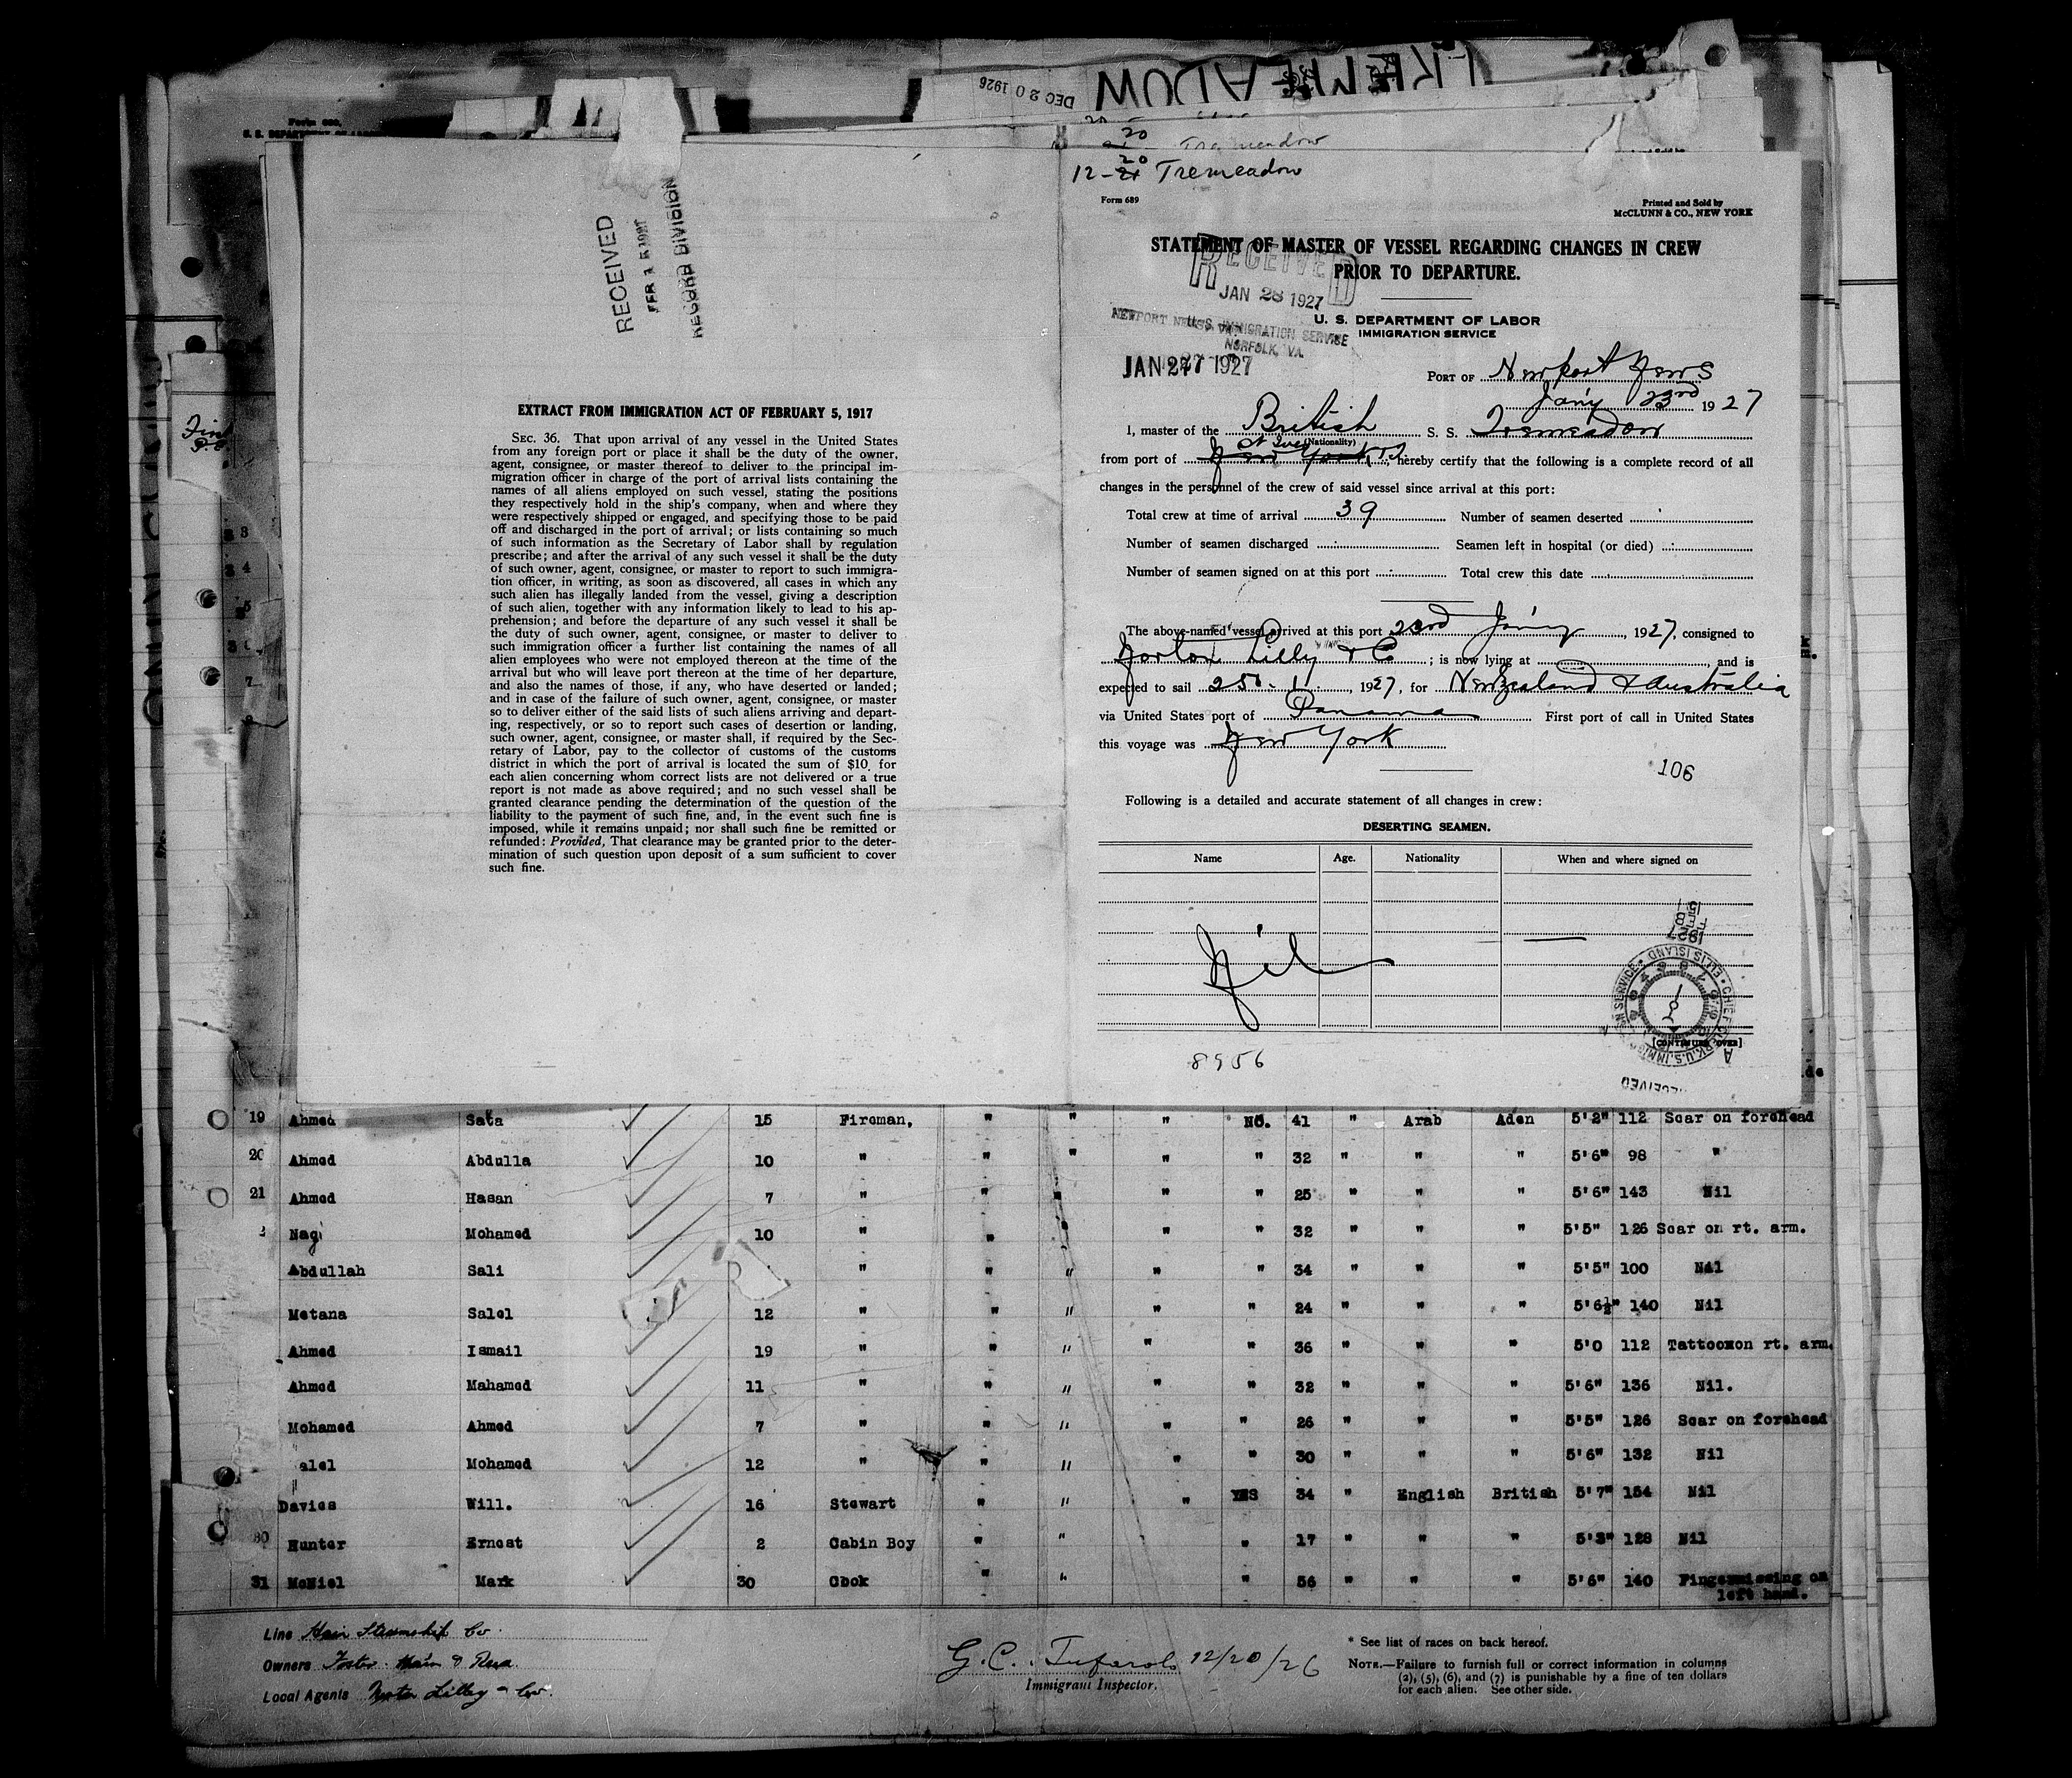 TREMEADOW
DEC 20 1926
Tremeadow
12-20 Tremeadow
Form 689
Printed and Sold by
McCLUNN & CO., NEW YORK
STATEMENT OF MASTER OF VESSEL REGARDING CHANGES IN CREW
PRIOR TO DEPARTURE.
RECEIVED
JAN 28 1927
U. S. IMMIGRATION SERVICE
NORFOLK, VA.
NEWPORT NEWS, VA.
JAN 27 1927
U. S. DEPARTMENT OF LABOR
IMMIGRATION SERVICE
PORT OF Newport News
Jan'y 23rd 1927
I, master of the British S. S. Tremeadow
(Nationality)
from port of New York, hereby certify that the following is a complete record of all
changes in the personnel of the crew of said vessel since arrival at this port:
Total crew at time of arrival 39 Number of seamen deserted
Number of seamen discharged Seamen left in hospital (or died)
Number of seamen signed on at this port Total crew this date
The above-named vessel arrived at this port 23rd Jan'y, 1927, consigned to
Norton Lilly & Co; is now lying at , and is
expected to sail 25. 1., 1927, for New Zealand & Australia
via United States port of Panama First port of call in United States
this voyage was New York
106
Following is a detailed and accurate statement of all changes in crew:
DESERTING SEAMEN.
Name Age. Nationality When and where signed on
Nil
[CONTINUED OVER]
CHIEF CLERK, U.S. IMMIGRATION SERVICE • ELLIS ISLAND •
RECEIVED
8956
RECEIVED
FEB 1 1927
RECORD DIVISION
EXTRACT FROM IMMIGRATION ACT OF FEBRUARY 5, 1917
SEC. 36. That upon arrival of any vessel in the United States
from any foreign port or place it shall be the duty of the owner,
agent, consignee, or master thereof to deliver to the principal im-
migration officer in charge of the port of arrival lists containing the
names of all aliens employed on such vessel, stating the positions
they respectively hold in the ship's company, when and where they
were respectively shipped or engaged, and specifying those to be paid
off and discharged in the port of arrival; or lists containing so much
of such information as the Secretary of Labor shall by regulation
prescribe; and after the arrival of any such vessel it shall be the duty
of such owner, agent, consignee, or master to report to such immigra-
tion officer, in writing, as soon as discovered, all cases in which any
such alien has illegally landed from the vessel, giving a description
of such alien, together with any information likely to lead to his ap-
prehension; and before the departure of any such vessel it shall be
the duty of such owner, agent, consignee, or master to deliver to
such immigration officer a further list containing the names of all
alien employees who were not employed thereon at the time of the
arrival but who will leave port thereon at the time of her departure,
and also the names of those, if any, who have deserted or landed;
and in case of the failure of such owner, agent, consignee, or master
so to deliver either of the said lists of such aliens arriving and depart-
ing, respectively, or so to report such cases of desertion or landing,
such owner, agent, consignee, or master shall, if required by the Sec-
retary of Labor, pay to the collector of customs of the customs
district in which the port of arrival is located the sum of $10 for
each alien concerning whom correct lists are not delivered or a true
report is not made as above required; and no such vessel shall be
granted clearance pending the determination of the question of the
liability to the payment of such fine, and, in the event such fine is
imposed, while it remains unpaid; nor shall such fine be remitted or
refunded: Provided, That clearance may be granted prior to the deter-
mination of such question upon deposit of a sum sufficient to cover
such fine.
19 Ahmed Sata 15 Fireman, " " " NO. 41 " Arab Aden 5'2" 112 Scar on forehead
20 Ahmed Abdulla 10 " " " " " 32 " " " 5'6" 98 "
21 Ahmed Hasan 7 " " " " " 25 " " " 5'6" 143 Nil
Nagi Mohamed 10 " " " " 32 " " " 5'5" 126 Scar on rt. arm.
Abdullah Sali " " " " " 34 " " " 5'5" 100 Nil
Metana Salel 12 " " " " " 24 " " " 5'6½" 140 Nil
Ahmed Ismail 19 " " " " " 36 " " " 5'0 112 Tattooxon rt. arm.
Ahmed Mahamed 11 " " " " " 32 " " " 5'6" 136 Nil.
Mohamed Ahmed 7 " " " " " 26 " " " 5'5" 126 Scar on forehead
alel Mohamed 12 " " " " " 30 " " " 5'6" 132 Nil
Davies Will. 16 Stewart " " " YES 34 " English British 5'7" 154 Nil
30 Hunter Ernest 2 Cabin Boy " " " 17 " " " 5'3" 128 Nil
31 McNiel Mark 30 Cook " " " 56 " " " 5'6" 140 Finger missing on
left hand.
Line Hain Steamship Co.
Owners Foster Hain & Rea
Local Agents Norton Lilley & Co.
G. C. 12/20/26
Immigrant Inspector.
* See list of races on back hereof.
NOTE.—Failure to furnish full or correct information in columns
(2), (5), (6), and (7) is punishable by a fine of ten dollars
for each alien. See other side.